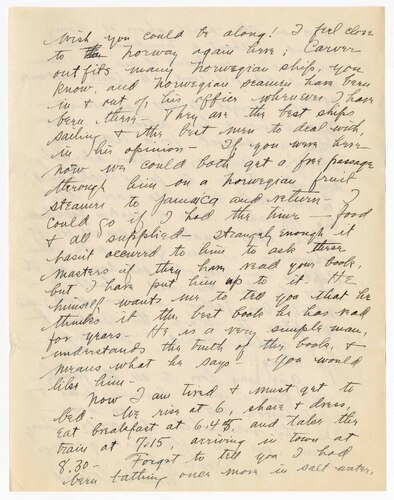 Wish you could be along! I feel close
to Norway again here; Carver
outfits many Norwegian ships, you
know, and Norwegian seamen have been
in & out of his office whenever I have
been there— They are the best ships
sailing & the best men to deal with
in his opinion— If you were here
now we could both get a free passage
through him on a Norwegian fruit
steamer to Jamaica and return— I
could go if I had the time — food
& all supplied— strangely enough it
hasn't occured to him to ask these
masters if they have read your book,
but I have put him up to it. He
himself wants me to tell you that he
thinks it the best book he has read
for years. He is a very simple man,
understands the truth of the book, &
means what he says— You would
like him—
Now I am tired & must get to
bed. We rise at 6, shave & dress,
eat breakfast at 6.45 and take the
train at 7.15, arriving in town at
8.30— Forgot to tell you I had
been bathing once more in salt water,